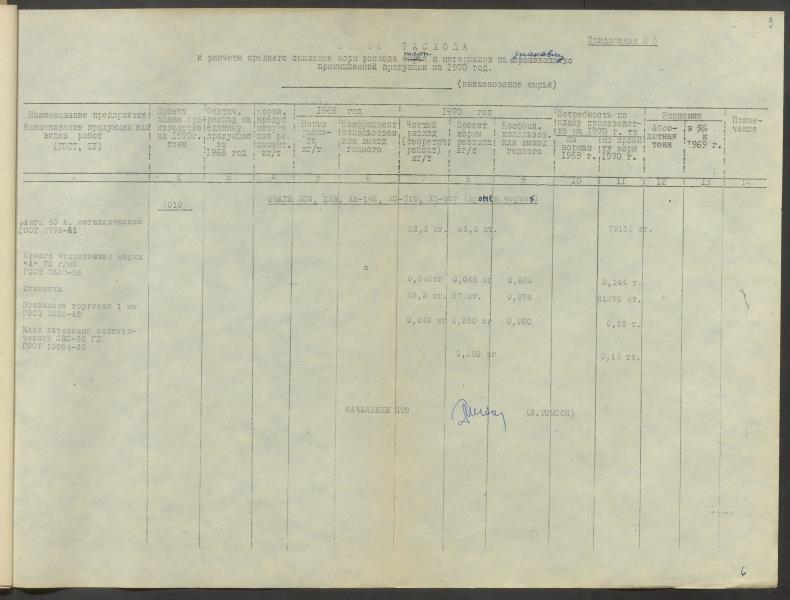 9
Приложение № 3
РАСХОДА
и расчеты среднего снижение норм расхода тары и материалов на упаковку
промышленной продукции на 1970 год.
(наименование сырья)
Наименование предприятия
Наименование продукции или
видов работ
(ГОСТ, ТУ)
Проект
плана про-
изводства
на 1970г.
тонн
Фактич.
расход на
единицу
продукции
за
1968 год
норма,
предус-
мотрен.
кг/т
1969 год
Норма
расхо-
да
кг/т
Коэффициент
использован.
или выход
годного
1970 год
Чистый
расход
(теоретич.
рецепт)
кг/т
Проект
нормы
расхода
кг/т
Коэффиц.
использов.
или выход
годного
Потребность по
плану производст-
ва на 1970 г. тн
по
нормам
1969 г.
по проек-
ту норм
1970 г.
Экономия
Абсо-
лютная
тонн
в %%
к
1969 г.
Приме-
чание
1 2 3 4 5 6 7 8 9 10 11 12 13 14
3010
ЭМАЛИ ХСЭ, ПХВ, ХВ-142, ХС-510, (кроме черных)
Фляги 40 л. металлические
ГОСТ 5799-51
26,3 шт. 26,3 шт. шт.
Бумага этикеточная марки
"А" 70 г/м2
ГОСТ 7625-55
0,040кг 0,048 кг 0,832 0,144 т.
Этикетки
26,3 шт. 27 шт. 0,974 81270 шт.
Проволока торговая 1 мм
ГОСТ 3282-46
0,049 кг 0,050 кг 0,980 0,15 т.
Клей латексный синтети-
ческий СКС-65 ГП
ГОСТ 10564-63
0,050 кг 0,15 тн.
НАЧАЛЬНИК ПТО (Э.ТОМСОН)
6